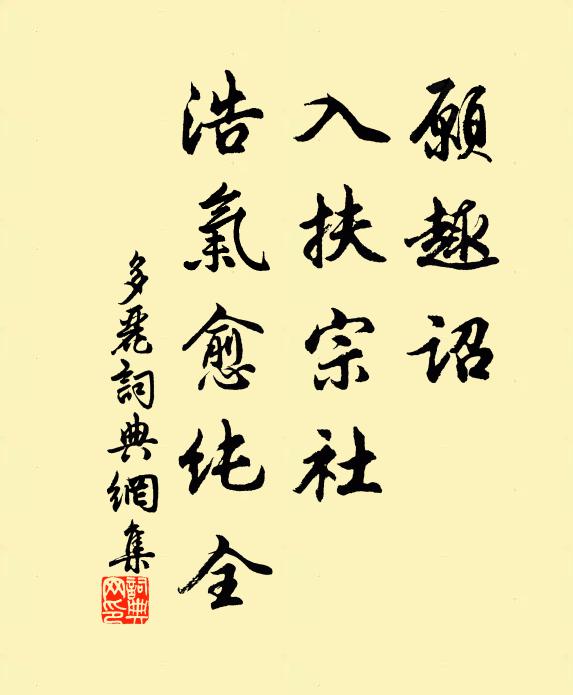 願趣詔
入扶宗社
浩氣愈純全
多麗詞典網集
詞典網印